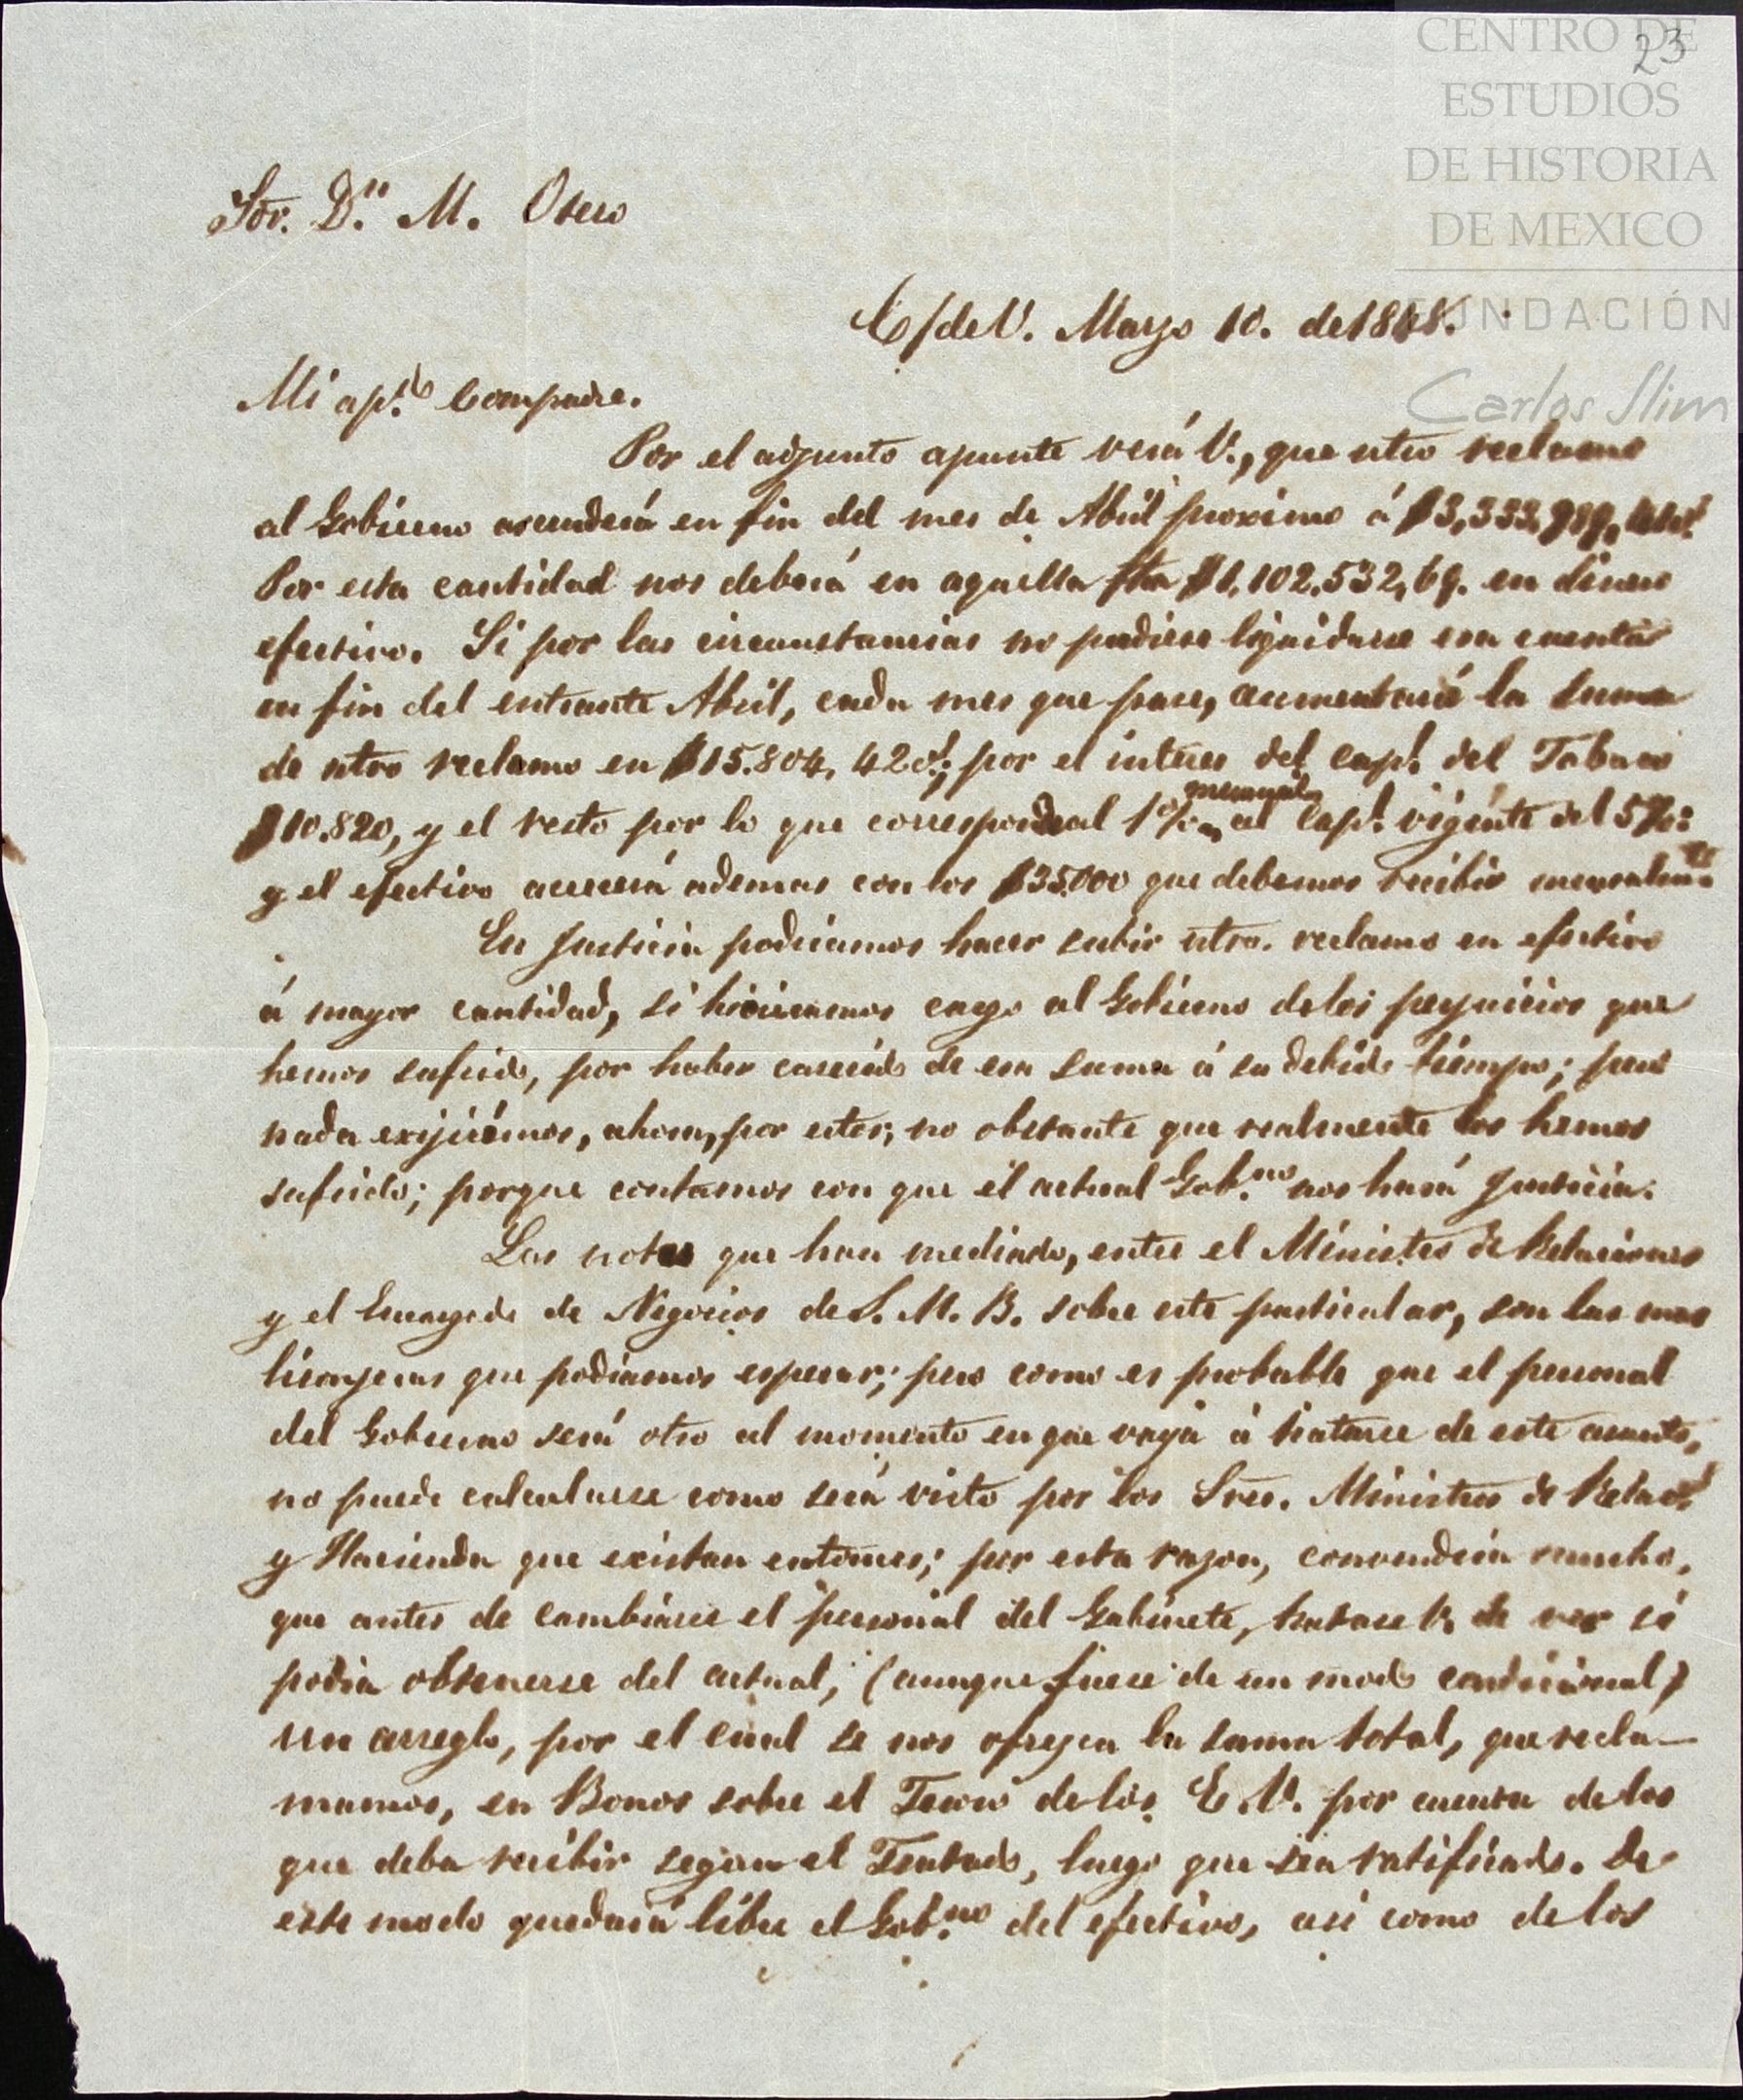 CENTRO DE
23
ESTUDIOS
DE HISTORIA
DE MEXICO
FUNDACIÓN
Carlos Slim
Sor. Dn. M. Otero
C/de V. Marzo 10. de 1848.
Mi ap.do Compadre.
Por el adjunto apunte verá V., que ntro reclamo
al Gobierno ascenderá en fin del mes de Abril proximo á $3,333,989,
Por esta cantidad nos deberá en aquella fha $1,102.532,69. en dinero
efectivo. Si por las circunstancias no pudiese liquidarse esa cuenta
en fin del entrante Abril, cada mes que pase, aumentará la suma
de ntro reclamo en $15.804, 42 cs; por el interes del cap.l del Tabaco
$10.820, y el resto por lo que corresponde al 1% mensual al Cap.l vigente del 5%:
y el efectivo crecerá ademas con los $35.000 que debemos recibir mensualm.te
En justicia podriamos hacer subir ntro. reclamo en efectivo
á mayor cantidad, si hicieramos cargo al Gobierno de los perjuicios que
hemos sufrido, por haber carecido de esa suma á su debido tiempo; pero
nada exijirémos, ahora, por estos; no obstante que realmente los hemos
sufrido; porque contamos con que el actual Gob.no nos hará justicia.
Las notas que han mediado, entre el Ministro de Relaciones
y el Encargado de Negocios de S. M. B. sobre este particular, son las mas
lisonjeras que podiamos esperar; pero como es probable que el personal
del Gobierno será otro al momento en que vaya á tratarse de este asunto,
no puede calcularse como será visto por los Sres. Ministros de Relac.s
y Hacienda que existan entonces; por esta razon, convendria mucho,
que antes de cambiarse el personal del Gabinete, tratase V. de ver si
podia obtenerse del actual, (aunque fuese de un modo condicional)
un arreglo, por el cual se nos ofrezca la suma total, que recla-
mamos, en Bonos sobre el Tesoro de los E. U. por cuenta de los
que deba recibir segun el Tratado, luego que sea ratificado. De
este modo quedará libre el Gob.no del efectivo, asi como de los